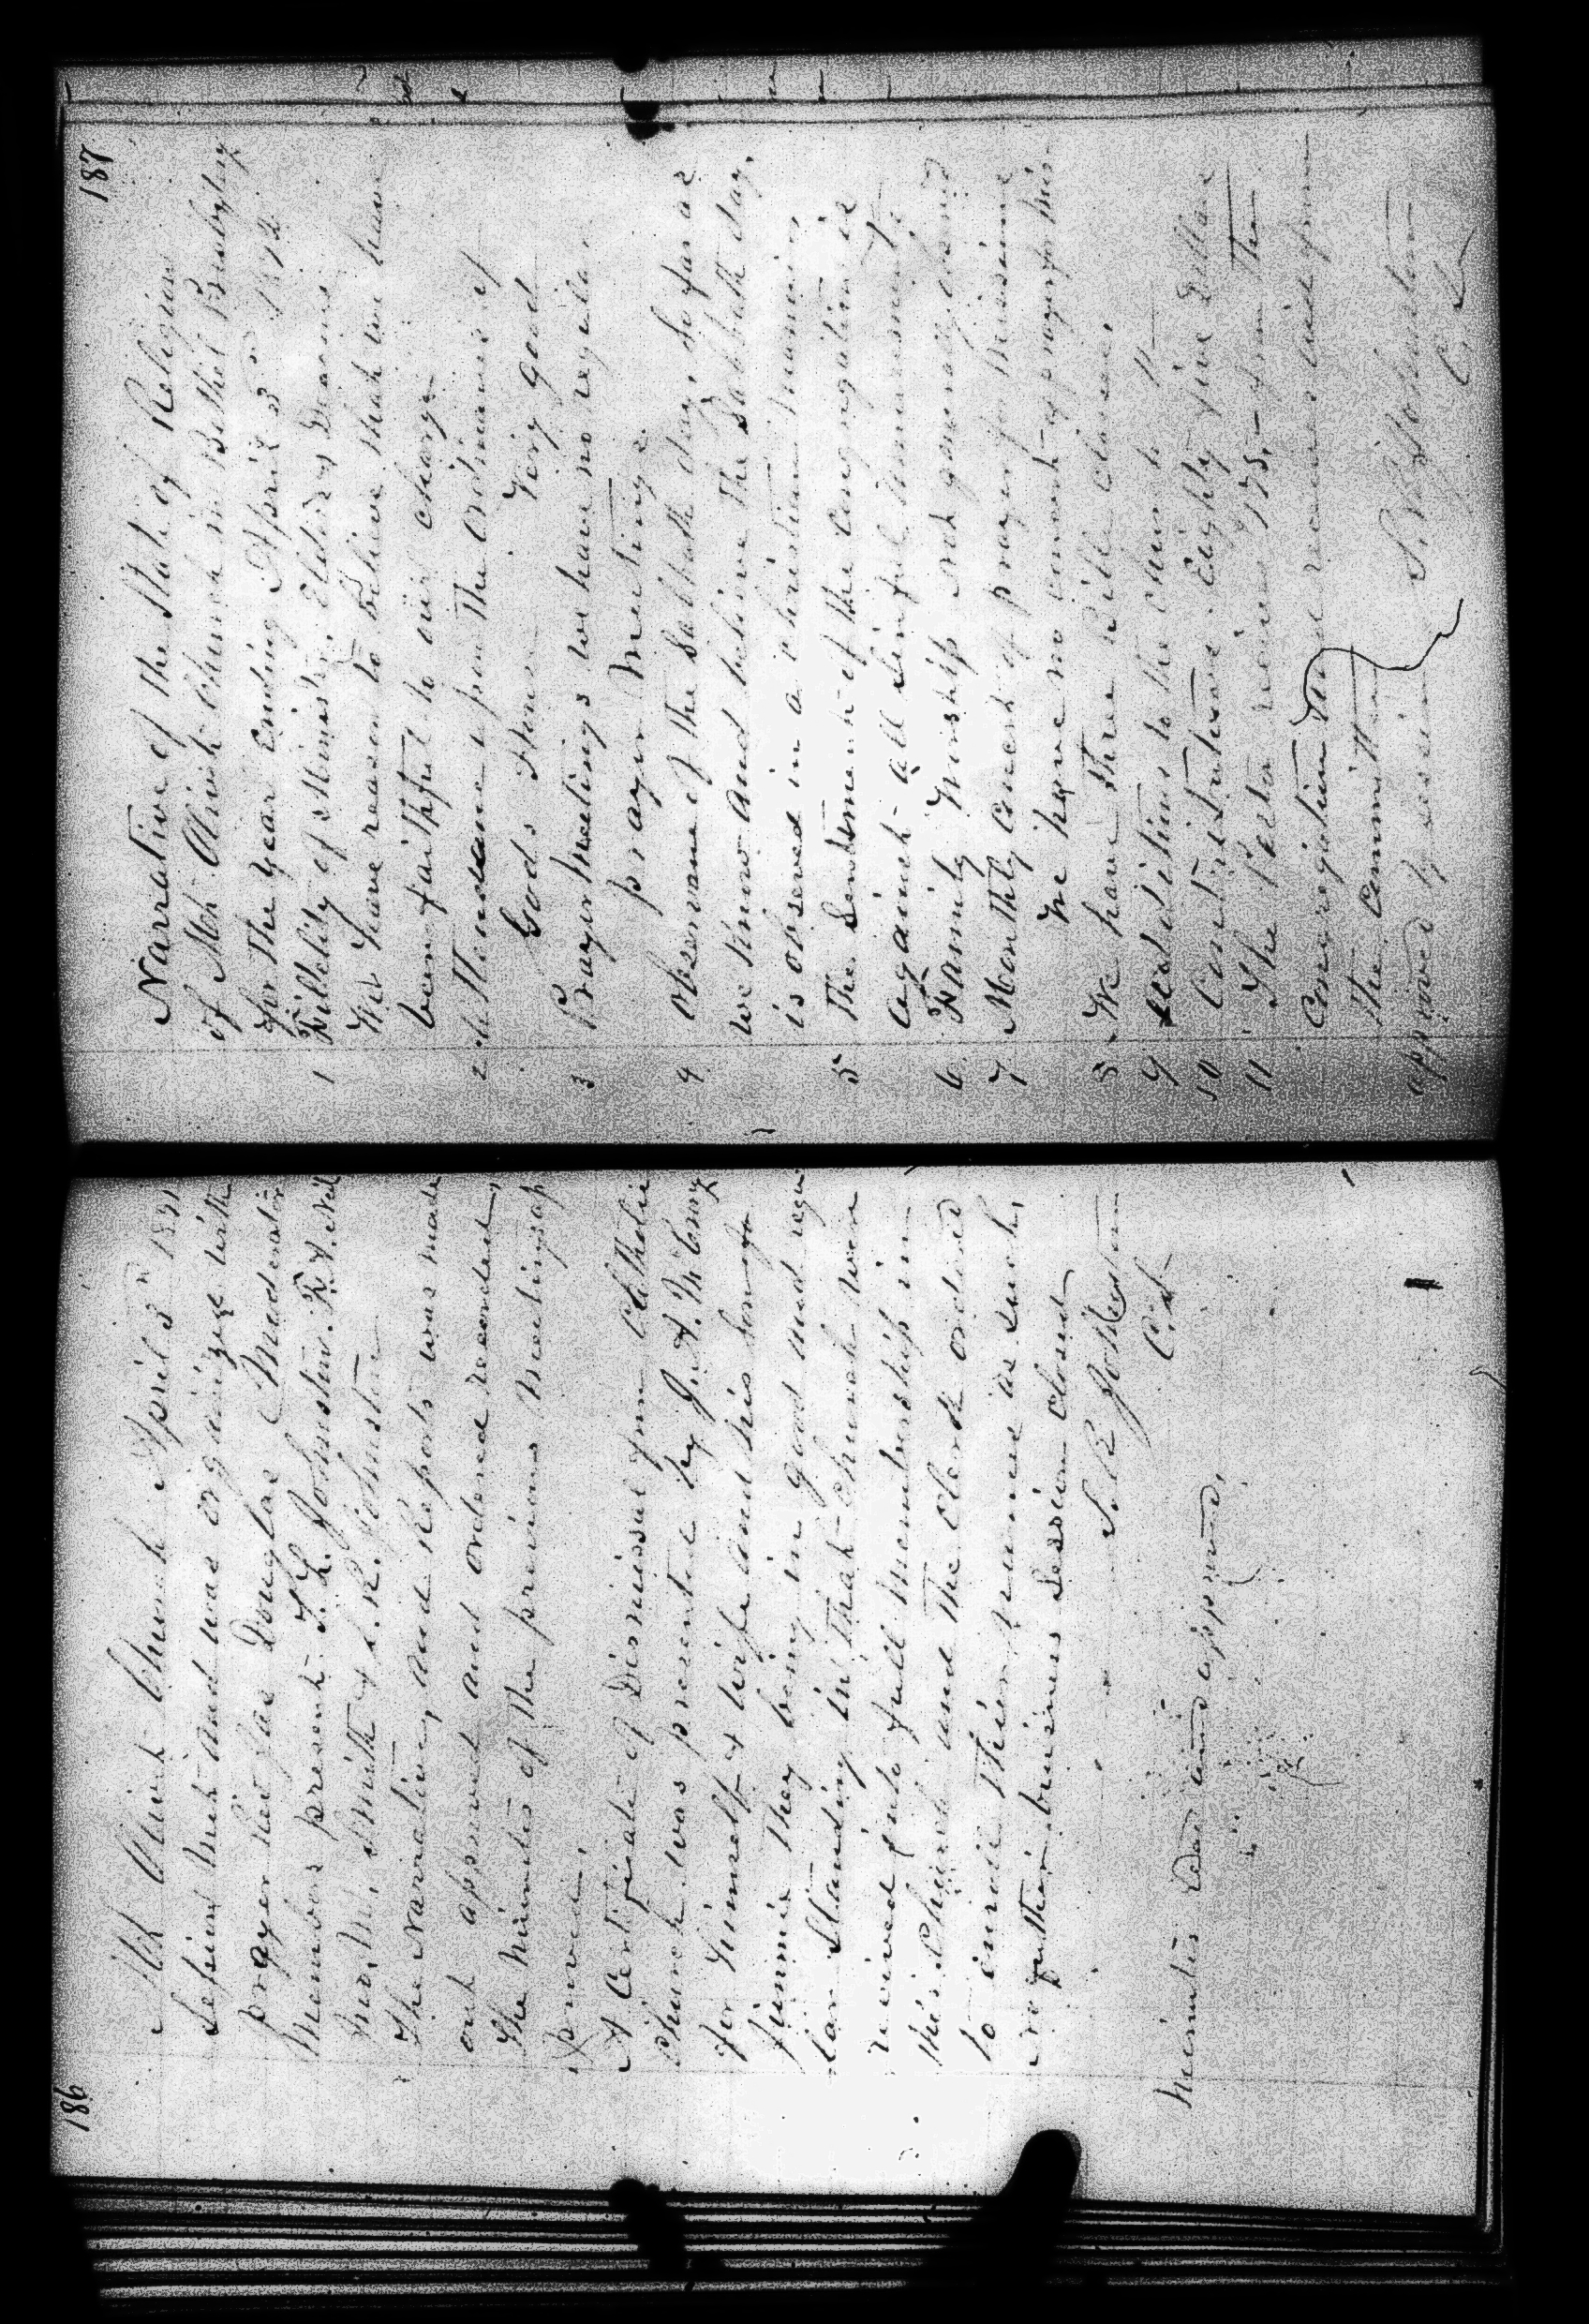 186
Mt Olivet Church April 3rd 1891
Session met and was organized with
prayer Rev Jas Douglas Moderator
Members present T. L. Johnston. R. A. Neil
Wm. Smith & S. R. Johnston
The Narrative, and Reports was made
out approved and ordered recorded,
The minutes of the previous Meetings ap
proved.
A Certificate of Dismissal from Catholic
Church was presented by J. A. McCrory
for himself & wife and his
Jinnie They being in good and regu
lar Standing in That Church were
received into full membership in
this Church and the Clerk ordered
to enroll Their names as such,
no further business Session closed
S. R. Johnston
C. S.
Minutes read and approved,
187
Narrative of the State of Religion
of Mt Olivet Church in Bethel Presbytery
for the year Ending April 3rd
1 Fidelity of Minister, Elders & Deacons
We have reason to believe that we have
been faithful to our charge
2 Attendance upon The Ordinances of
Gods House Very good
3 Prayer Meetings we have no regular
prayer Meetings
4 Observance of the Sabbath day, So far as
we know and believe the Sabbath day,
is observed in a christian manner,
5 The Sentiment of the Congregation is
against all Sinful Amusements,
6 Family Worship not generally observed
7 Monthly Concert of prayer for Missions
We have no concert of prayer for Mis-
8 We have three Bible classes,
9 Additions to the Church 11
10 Contributions Eighty five Dollars
11 The Pastor receives $175.- from The
Congregation and receives aid from
the Committee
approved by session S. R. Johnston
C. S.